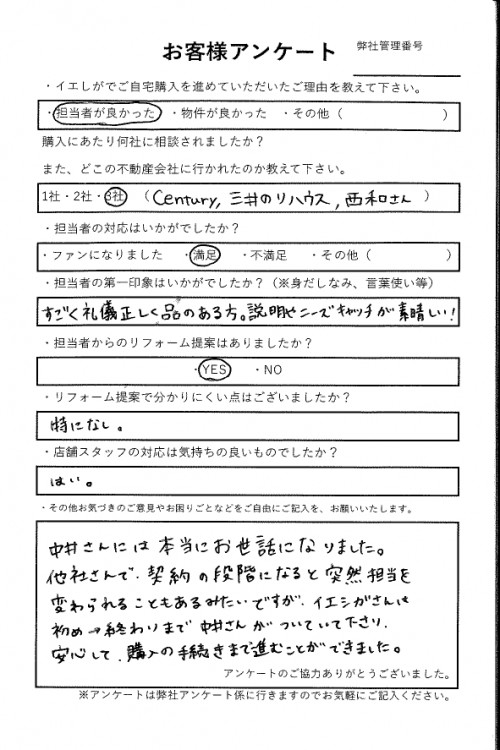 お客様アンケート 弊社管理番号
・イエしがでご自宅購入を進めていただいたご理由を教えて下さい。
・担当者が良かった ・物件が良かった ・その他（ ）
購入にあたり何社に相談されましたか？
また、どこの不動産会社に行かれたのか教えて下さい。
1社・2社・3社 （Century, 三井のリハウス, 西和さん ）
・担当者の対応はいかがでしたか？
・ファンになりました ・満足 ・不満足 ・その他（ ）
・担当者の第一印象はいかがでしたか？（※身だしなみ、言葉使い等）
すごく礼儀正しく品のある方。説明やニーズキャッチが素晴しい！
・担当者からのリフォーム提案はありましたか？
・YES ・NO
・リフォーム提案で分かりにくい点はございましたか？
特になし。
・店舗スタッフの対応は気持ちの良いものでしたか？
はい。
・その他お気づきのご意見やお困りごとなどをご自由にご記入を、お願いいたします。
中井さんには本当にお世話になりました。
他社さんで、契約の段階になると突然担当を
変わられることもあるみたいですが、イエシガさんは
初め→終わりまで中井さんがついていて下さり、
安心して、購入の手続きまで進むことができました。
アンケートのご協力ありがとうございました。
※アンケートは弊社アンケート係に行きますのでお気軽にご記入ください。